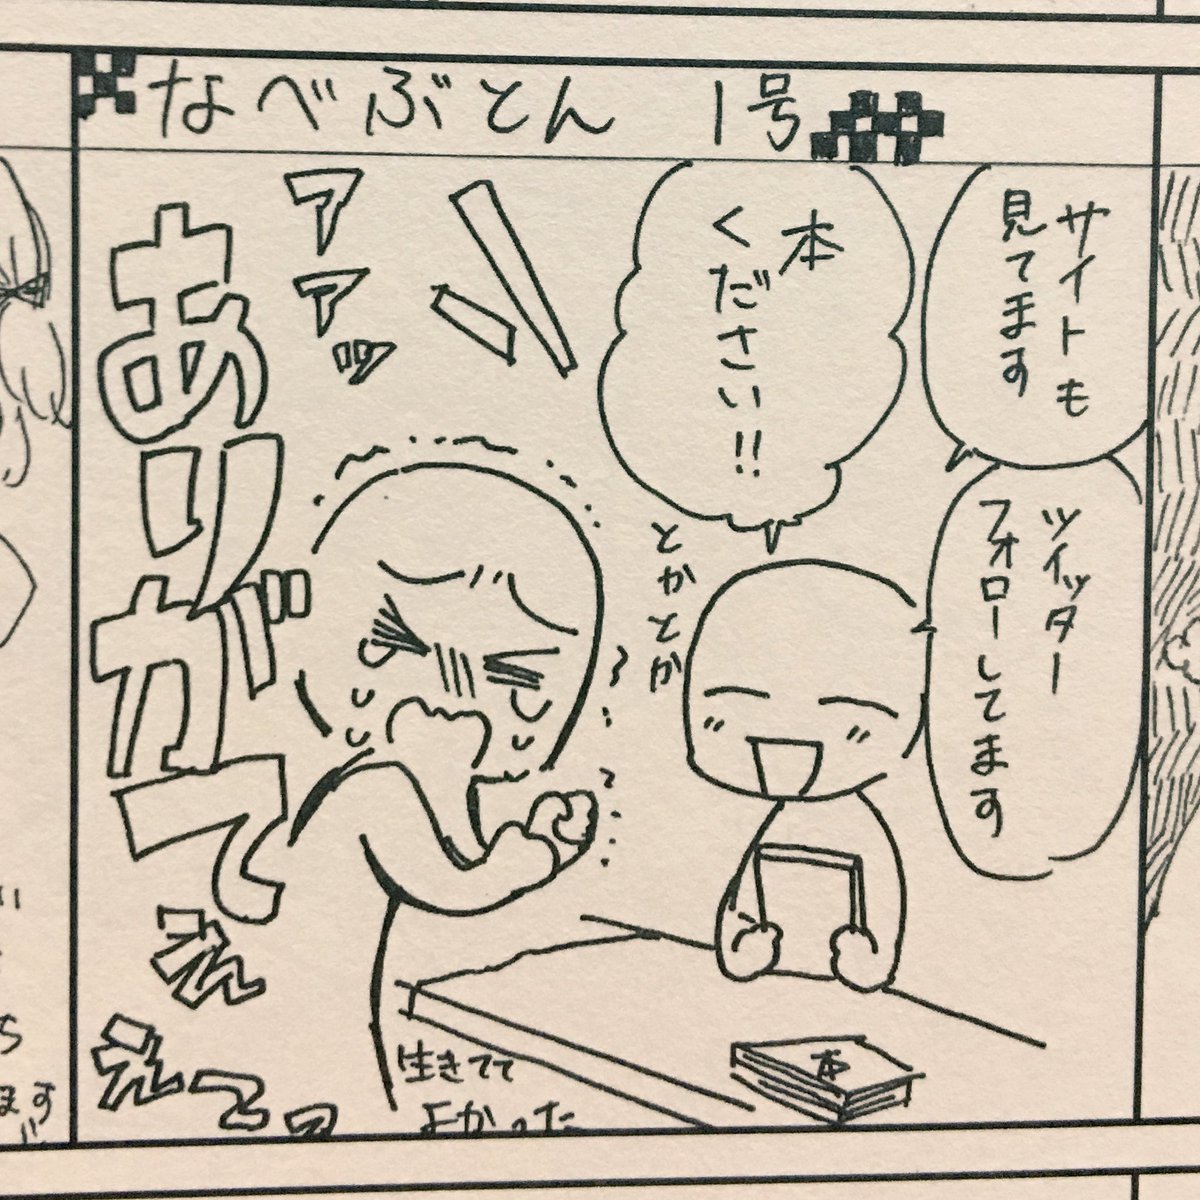 なべぶとん 1号
サイトも
見てます
ツイッター
フォローしてます
本
ください!!
とかとか
アアアッ
ありがてえ
えてて
生きてて
よかった
本